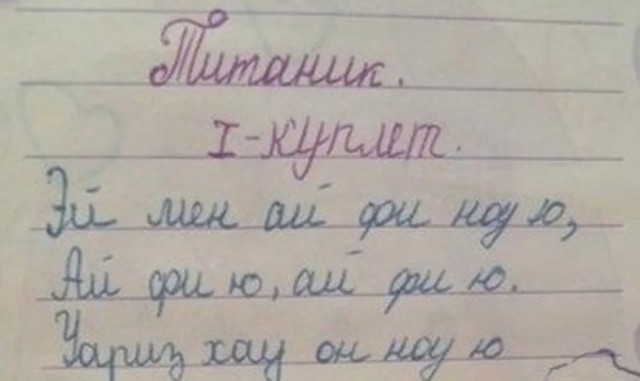 Титаник.
I-куплет.
Эй мен ай фи ноу ю,
Ай фи ю, ай фи ю.
Уариз хау он ноу ю